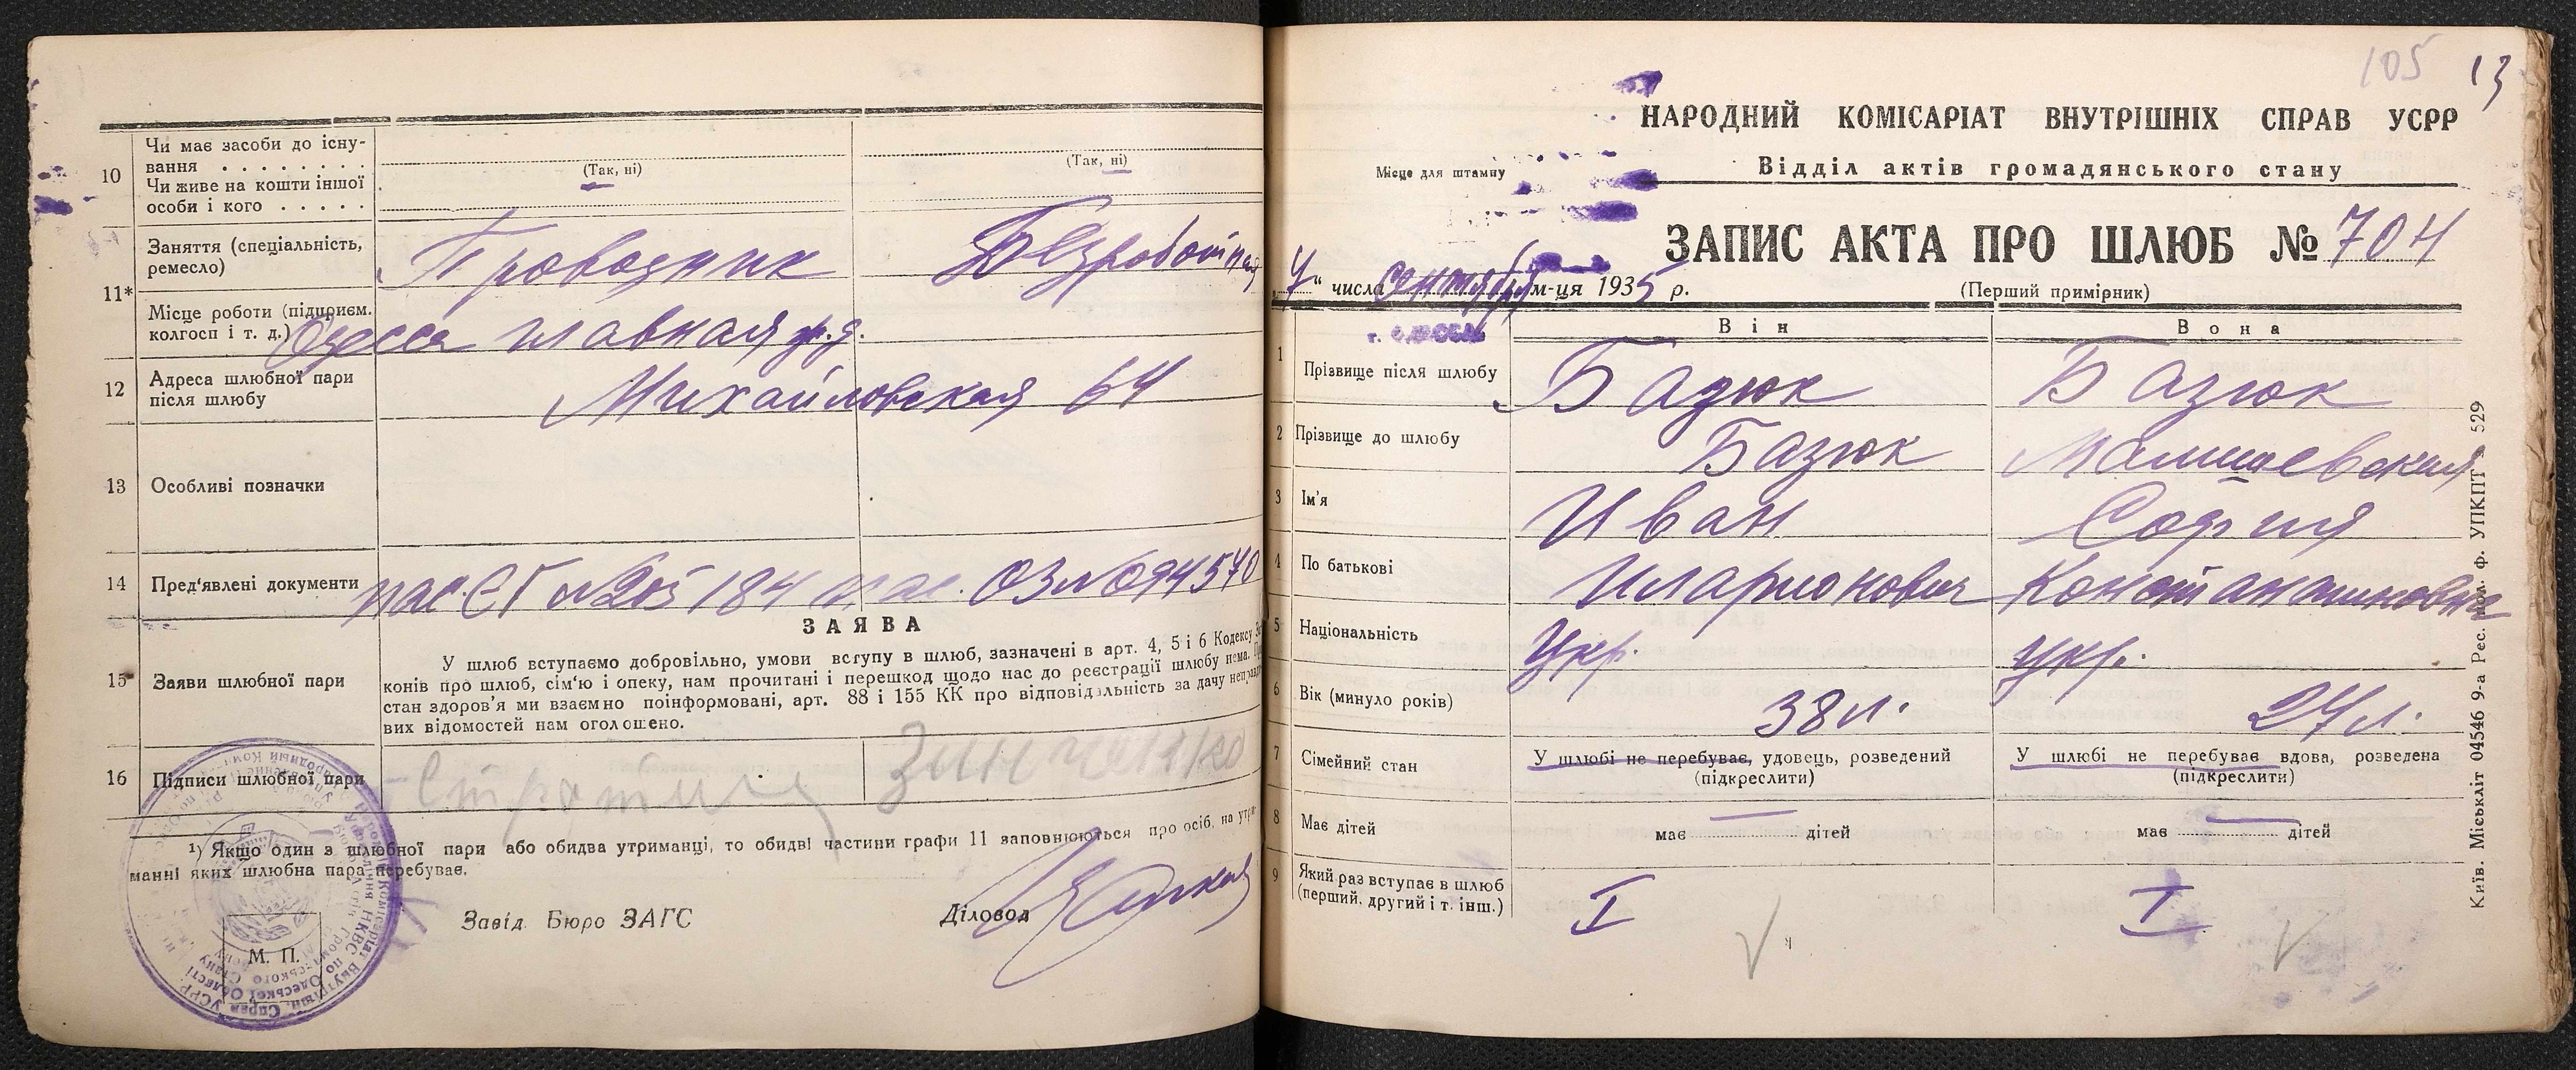 10
Чи має засоби до існу-
вання . . . . . . . .
Чи живе на кошти іншої
особи і кого . . . . .
(Так, ні)
(Так, ні)
11*
Заняття (спеціальність,
ремесло)
Проводник
Безработная
Місце роботи (підприєм.
колгосп і т. д.)
Одесса главная ж.д.
12
Адреса шлюбної пари
після шлюбу
Михайловская 64
13
Особливі позначки
14
Пред'явлені документи
пас. СГ № 205184 пас. ОЗ № 694540
15
Заяви шлюбної пари
ЗАЯВА
У шлюб вступаємо добровільно, умови вступу в шлюб, зазначені в арт. 4, 5 і 6 Кодексу За-
конів про шлюб, сім'ю і опеку, нам прочитані і перешкод щодо нас до реєстрації шлюбу нема. Про
стан здоров'я ми взаємно поінформовані, арт. 88 і 155 КК про відповідальність за дачу неправди-
вих відомостей нам оголошено.
16
Підписи шлюбної пари
Зинченко
¹) Якщо один з шлюбної пари або обидва утриманці, то обидві частини графи 11 заповнюються про осіб, на утри-
манні яких шлюбна пара перебуває.
Завід. Бюро ЗАГС
Діловод
М. П.
105
13
НАРОДНИЙ КОМІСАРІАТ ВНУТРІШНІХ СПРАВ УСРР
Місце для штампу
Відділ актів громадянського стану
ЗАПИС АКТА ПРО ШЛЮБ № 704
„4“ числа сентября м-ця 1935 р.
(Перший примірник)
м. ОДЕСА
Він
Вона
1
Прізвище після шлюбу
Базюк
Базюк
2
Прізвище до шлюбу
Базюк
Малишевская
3
Ім'я
Иван
София
4
По батькові
Иларионович
Константиновна
5
Національність
Укр.
Укр.
6
Вік (минуло років)
38 л.
24 л.
7
Сімейний стан
У шлюбі не перебуває, удовець, розведений
(підкреслити)
У шлюбі не перебуває вдова, розведена
(підкреслити)
8
Має дітей
має — дітей
має — дітей
9
Який раз вступає в шлюб
(перший, другий і т. інш.)
I
I
Київ. Міськліт 04546 9-а Рес. пол. ф. УПКПТ з 529